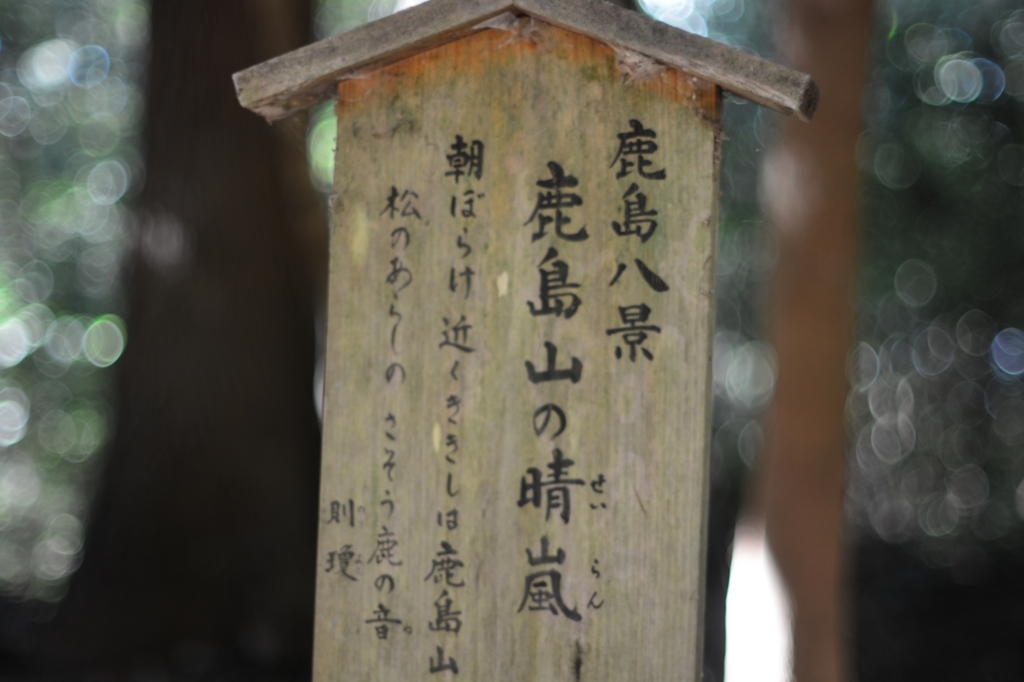 鹿島八景
鹿島山の晴嵐
せいらん
朝ぼらけ近くききしは鹿島山
松のあらしのさそう鹿の音。
則瓊